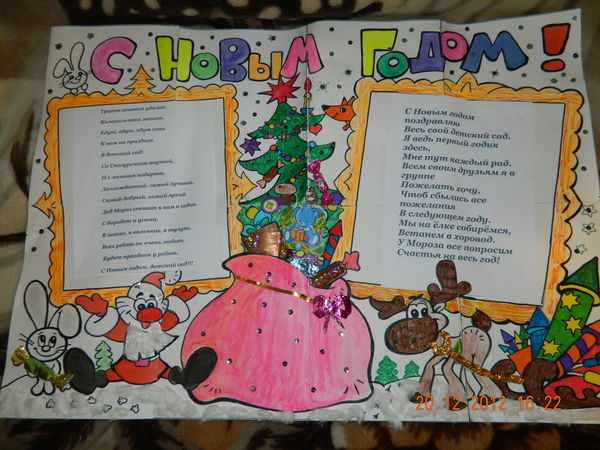 С Новым Годом!
Тройка мчится удалая,
Колокольчики звенят,
Едут, едут, едут сани
К нам на праздник
В детский сад!
Со Снегурочкою внучкой,
И с мешком подарков.
Долгожданный, самый лучший,
Самый добрый, самый яркий
Дед Мороз спешит к нам в садик
С бородою и усами,
В шапке, в валенках, в тулупе,
Всех ребят он очень любит.
Будет праздник у ребят,
С Новым годом, детский сад!!!
С Новым годом
поздравляю
Весь свой детский сад.
Я ведь первый годик
здесь,
Мне тут каждый рад.
Всем своим друзьям я в
группе
Пожелать хочу,
Чтоб сбылись все
пожелания
В следующем году.
Мы на ёлке соберёмся,
Встанем в хоровод.
У Мороза все попросим
Счастья на весь год!
20 12 2012 16:22